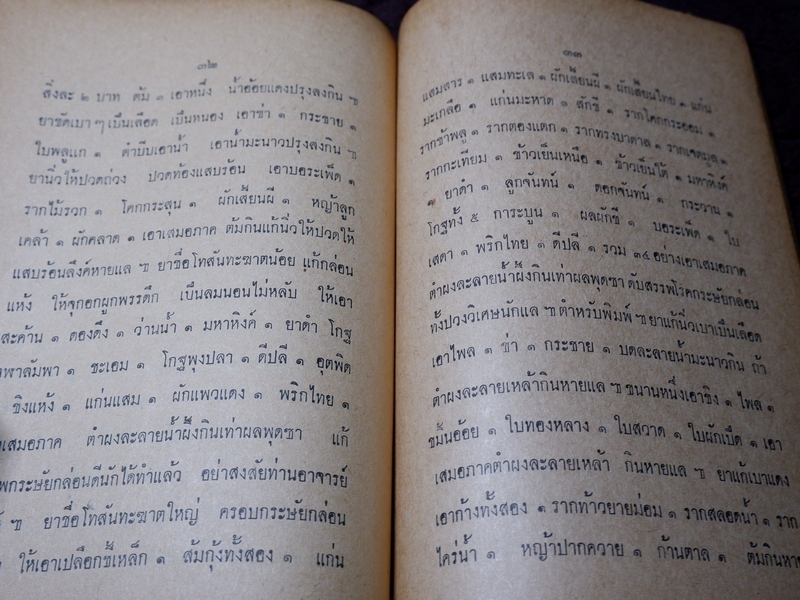 ๓๒
สิ่งละ ๒ บาท ต้ม ๓ เอาหนึ่ง น้ำอ้อยแดงปรุงลงกิน ฯ
ยาขัดเบาๆเป็นเลือด เป็นหนอง เอาข่า ๑ กระชาย ๑
ใบพลูแก ๑ ตำบีบเอาน้ำ เอาน้ำมะนาวปรุงลงกิน ฯ
ยานิ่วให้ปวดถ่วง ปวดท้องแสบร้อน เอาบอระเพ็ด ๑
รากไม้รวก ๑ โคกกระสุน ๑ ผักเสี้ยนผี ๑ หญ้าลูก
เคล้า ๑ ผักคลาด ๑ เอาเสมอภาค ต้มกินแก้นิ่วให้ปวดให้
แสบร้อนลึงค์หายแล ฯ ยาชื่อโทสันทะฆาตน้อย แก้กล่อน
แห้ง ให้จุกอกผูกพรรดึก เป็นลมนอนไม่หลับ ให้เอา
สะค้าน ๑ ดองดึง ๑ ว่านน้ำ ๑ มหาหิงค์ ๑ ยาดำ โกฐ
พาลัมพา ๑ ชะเอม ๑ โกฐพุงปลา ๑ ดีปลี ๑ อุตพิด
ขิงแห้ง ๑ แก่นแสม ๑ ผักแพวแดง ๑ พริกไทย ๑
เสมอภาค ตำผงละลายน้ำผึ้งกินเท่าผลพุดซา แก้
กระษัยกล่อนดีนักได้ทำแล้ว อย่าสงสัยท่านอาจารย์
ฯ ยาชื่อโทสันทะฆาตใหญ่ ครอบกระษัยกล่อน
ให้เอาเปลือกขี้เหล็ก ๑ ส้มกุ้งทั้งสอง ๑ แก่น
๓๓
แสมสาร ๑ แสมทะเล ๑ ผักเสี้ยนผี ๑ ผักเสี้ยนไทย ๑ แก่น
มะเกลือ ๑ แก่นมะหาด ๑ สักขี ๑ รากโคกกระออม ๑
รากช้าพลู ๑ รากตองแตก ๑ รากทรงบาดาล ๑ รากเจตมูล ๑
รากกะเทียม ๑ ข้าวเย็นเหนือ ๑ ข้าวเย็นใต้ ๑ มหาหิงค์
๑ ยาดำ ๑ ลูกจันทน์ ๑ ดอกจันทน์ ๑ กระวาน ๑
โกฐทั้ง ๕ การะบูน ๑ ผลผักชี ๑ บอระเพ็ด ๑ ใบ
เสดา ๑ พริกไทย ๑ ดีปลี ๑ รวม ๓๔ อย่างเอาเสมอภาค
ตำผงละลายน้ำผึ้งกินเท่าผลพุดซา ดับสรรพโรคกระษัยกล่อน
ทั้งปวงวิเศษนักแล ฯ ตำหรับพิมพ์ ฯ ยาแก้นิ่วเบาเป็นเลือด
เอาไพล ๑ ข่า ๑ กระชาย ๑ บดละลายน้ำมะนาวกิน ถ้า
ตำผงละลายเหล้ากินหายแล ฯ ขนานหนึ่งเอาขิง ๑ ไพล ๑
ขมิ้นอ้อย ๑ ใบทองหลาง ๑ ใบสวาด ๑ ใบผักเป็ด ๑ เอา
เสมอภาคตำผงละลายเหล้า กินหายแล ฯ ยาแก้เบาแดง
เอาก้างทั้งสอง ๑ รากท้าวยายม่อม ๑ รากสลอดน้ำ ๑ ราก
ไคร่น้ำ ๑ หญ้าปากควาย ๑ ก้านตาล ๑ ต้มกินหาย